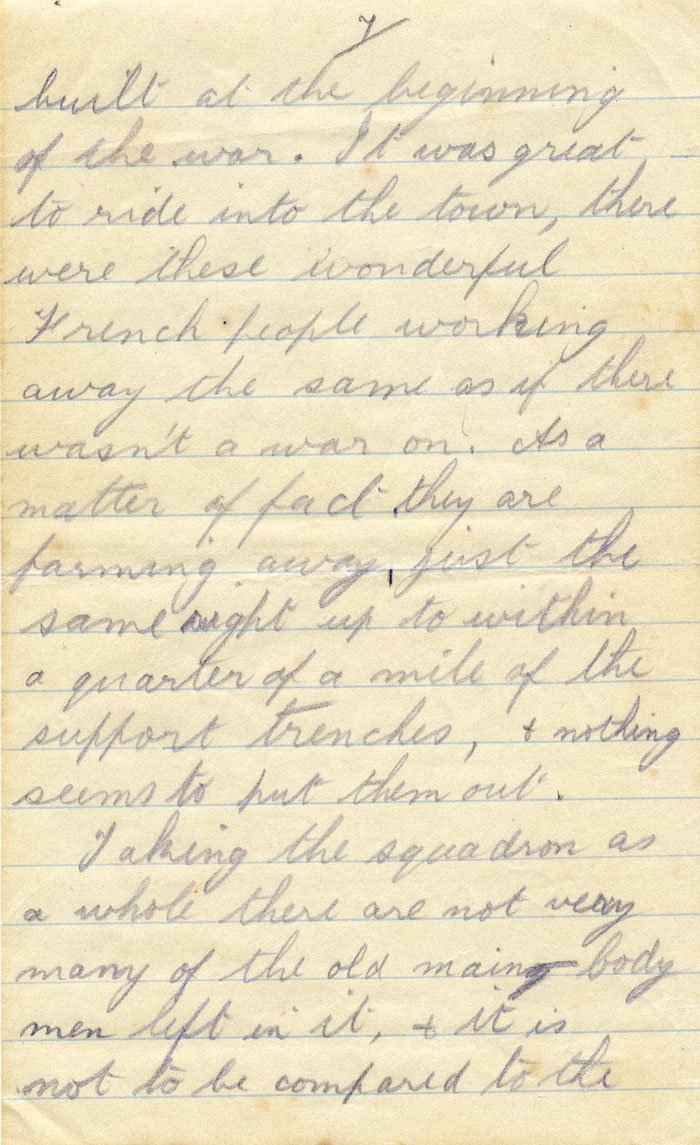 7
built at the beginning
of the war. It was great
to ride into the town, there
were these wonderful
French people working
away the same as if there
wasn't a war on. As a
matter of fact they are
farming away, just the
same right up to within
a quarter of a mile of the
support trenches, & nothing
seems to put them out.
Taking the squadron as
a whole there are not very
many of the old main body
men left in it, & it is
not to be compared to the